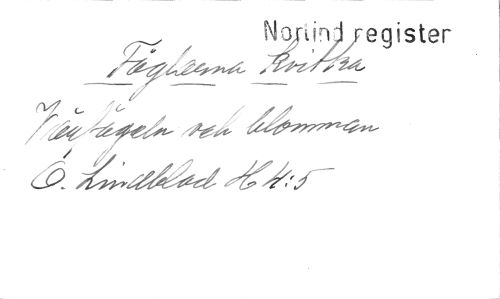 Norlind register
Fåglarna kvittra
Vårfågeln och blomman
O. Lindblad H 4:5